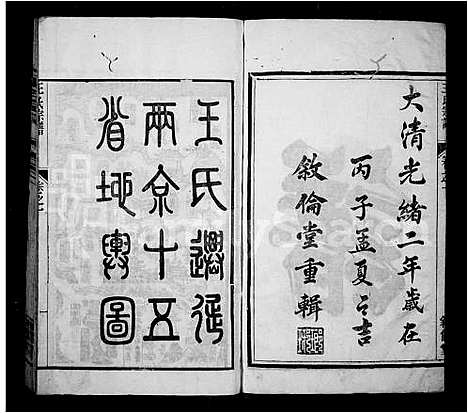 大清光緒二年歲在
丙子孟夏之吉
敘倫堂重輯
王氏遷徙
兩京十五
省地輿圖